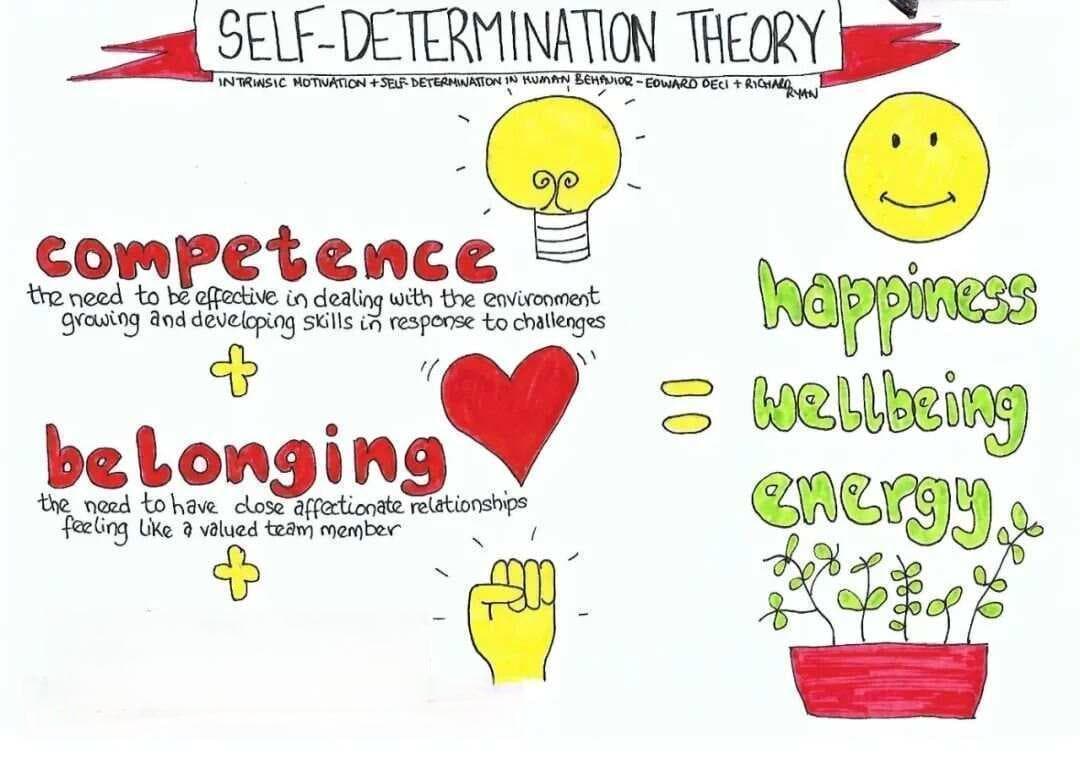 SELF-DETERMINATION THEORY
INTRINSIC MOTIVATION + SELF-DETERMINATION IN HUMAN BEHAVIOR - EDWARD DECI + RICHARD
RYAN
competence
the need to be effective in dealing with the environment
growing and developing skills in response to challenges
+
belonging
the need to have close affectionate relationships
feeling like a valued team member
+
=
happiness
wellbeing
energy